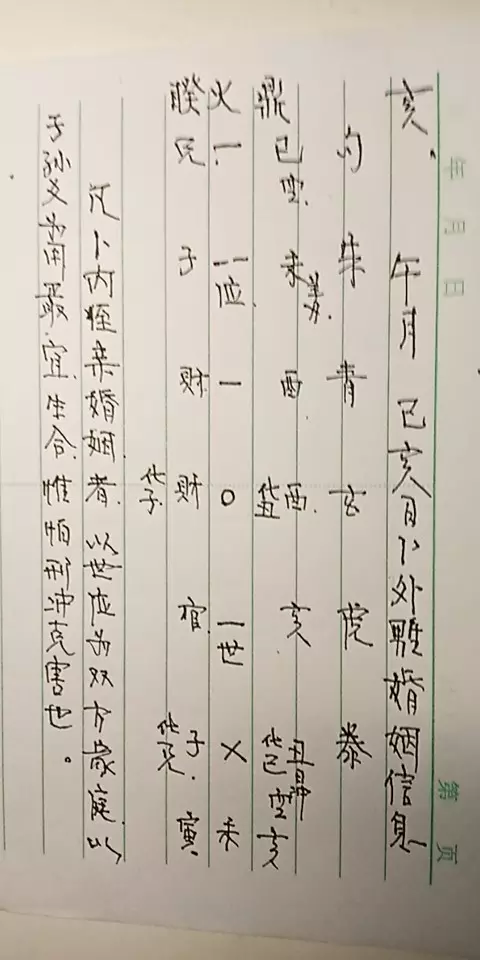 年月日
第 页
亥、午月 己亥日卜外甥婚姻信息
勾 朱 青 玄 虎 滕
鼎 巳空 未 酉 酉化丑 亥 丑 化巳空 亥
火 一 一位 一 〇 一世 X 未
睽 兄 子 财 财化子 官 子化兄 寅
凡卜内侄亲婚姻者、以世位为双方家庭、以
子孙爻为用最宜生合、惟怕刑冲克害也。